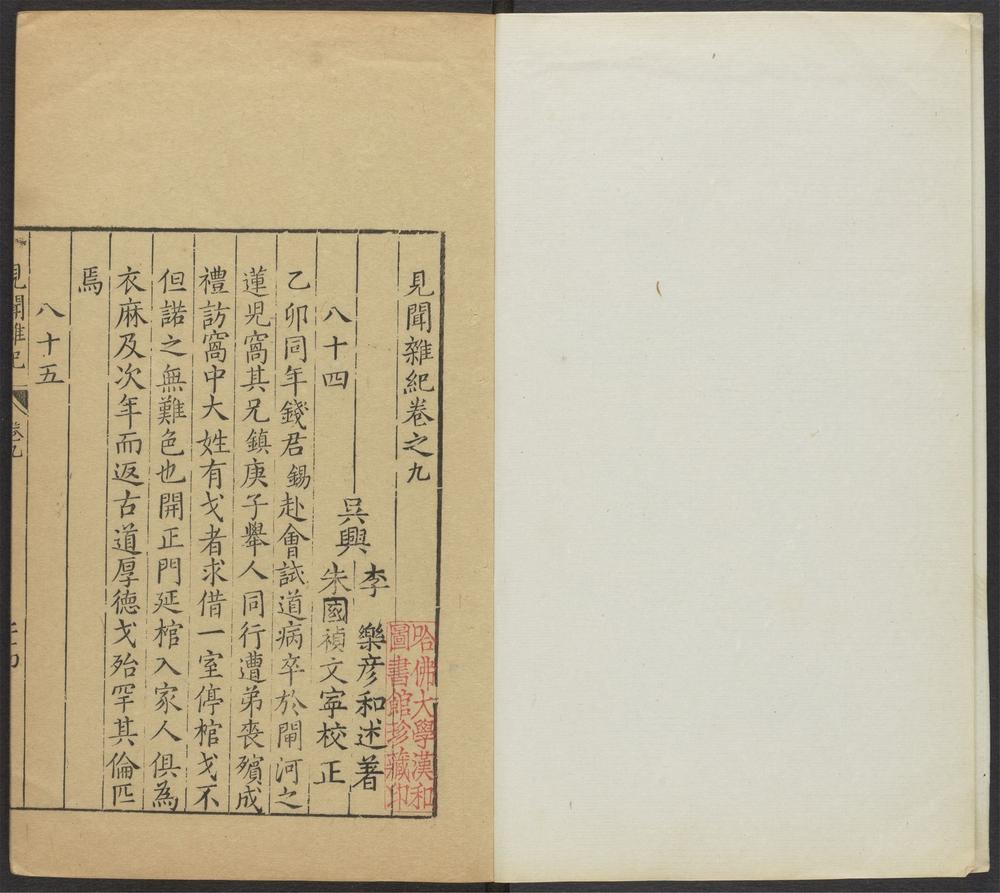 見聞雜紀卷之九
吳興
李　樂彦和述著
朱國禎文寧校正
哈佛大學漢和
圖書館珍藏印
八十四
乙卯同年錢君錫赴會試道病卒於閘河之
蓮児窩其兄鎮庚子舉人同行遭弟喪殯成
禮訪窩中大姓有戈者求借一室停棺戈不
但諾之無難色也開正門延棺入家人俱為
衣麻及次年而返古道厚德戈殆罕其倫匹
焉
八十五
見聞雜紀
卷九